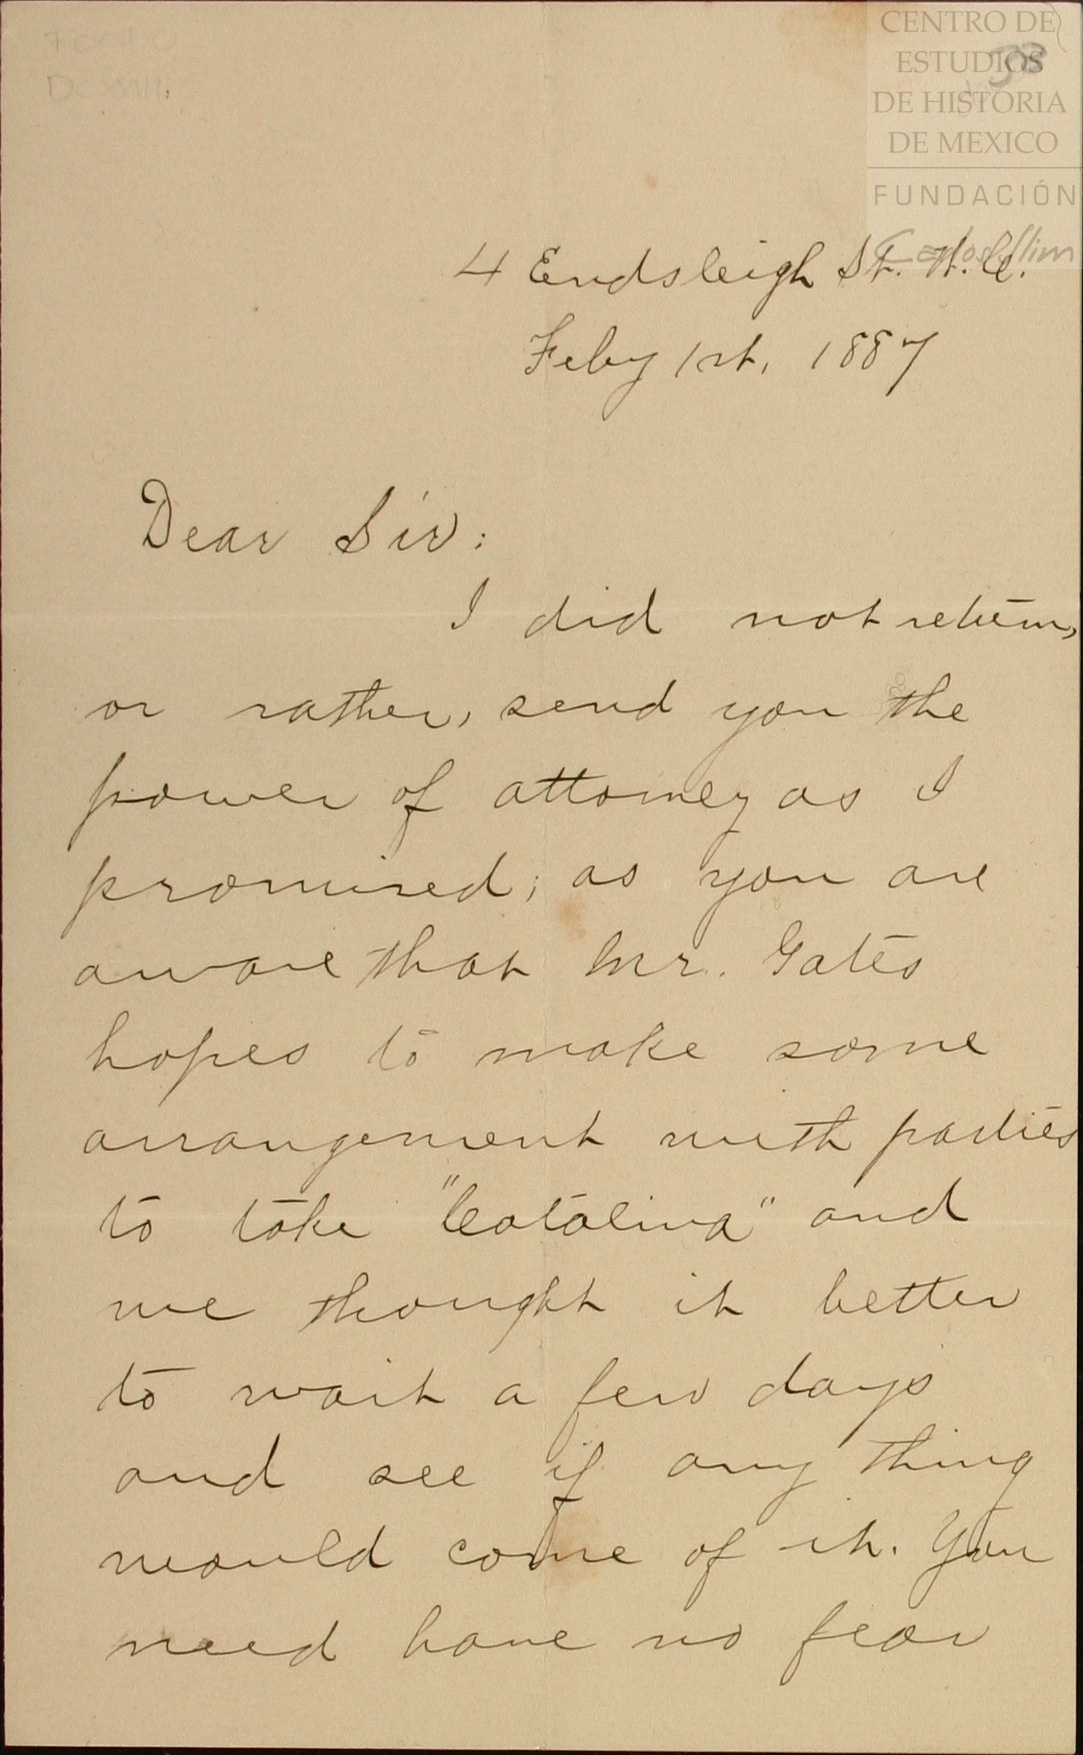 CENTRO DE
ESTUDIOS
DE HISTORIA
DE MEXICO
FUNDACIÓN
Carlos Slim
4 Endsleigh St. W.C.
Feby 1st, 1887
Dear Sir:
I did not return,
or rather, send you the
power of attorney as I
promised; as you are
aware that Mr. Gates
hopes to make some
arrangement with parties
to take "Catalina" and
we thought it better
to wait a few days
and see if any thing
would come of it. You
need have no fear